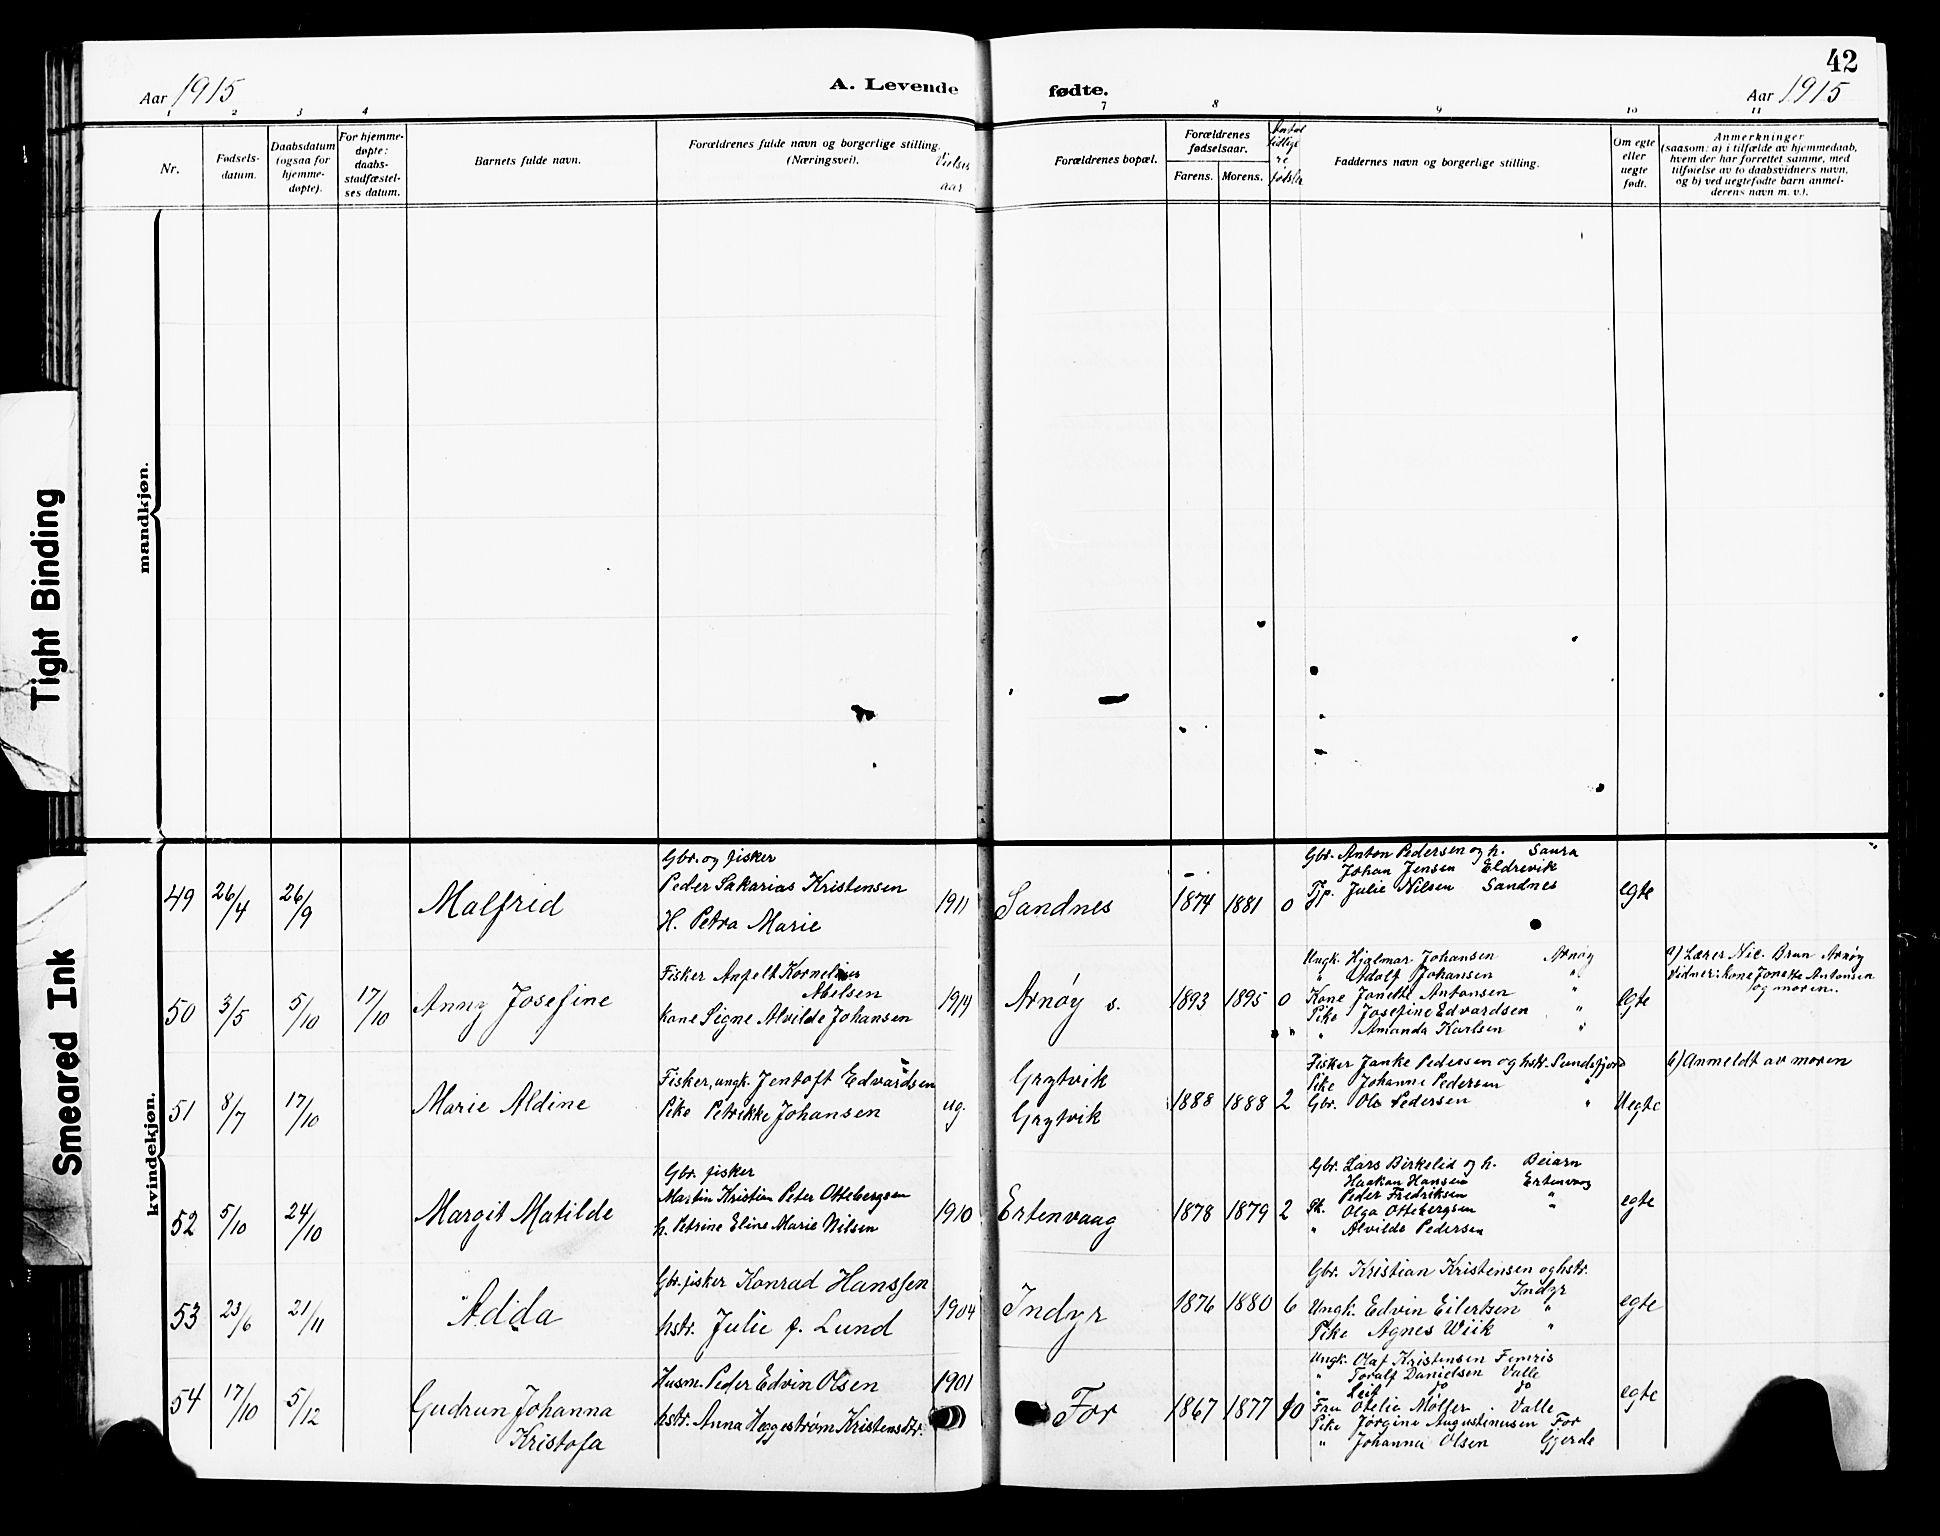 42
Aar 1915
A. Levende
fødte.
Aar 1915
1 2 3 4
7 8 9 10 11
Nr.
Fødsels-
datum.
Daabsdatum
(ogsaa for
hjemme-
døpte).
For hjemme-
døpte:
daabs-
stadfæstel-
ses datum.
Barnets fulde navn.
Forældrenes fulde navn og borgerlige stilling.
(Næringsvei).
Vielses
aar
Forældrenes bopæl.
Forældrenes
fødselsaar.
Farens. Morens.
Antal
tidlige
re
fødsler
Faddernes navn og borgerlige stilling.
Om egte
eller
uegte
født.
Anmerkninger
(saasom: a) i tilfælde av hjemmedaab,
hvem der har forrettet samme, med
tilføielse av to daabsvidners navn,
og b) ved uegtefødte barn anmel-
derens navn m. v.).
mandkjøn.
kvindekjøn.
Tight Binding
Smeared Ink
49 26/4 26/9
Malfrid
Gbr. og fisker
Peder Sakarias Kristensen
H. Petra Marie
1911
Sandnes
1874 1881 0
Gbr. Anton Pedersen og h. Saura
Johan Jensen Eldrevik
Tjp. Julie Nilsen Sandnes
egte
50 3/5 5/10 17/10
Anny Josefine
Fisker Anfelt Kornelius
Abelsen
kone Signe Alvilde Johansen
1914
Arnøy s.
1893 1895 0
Ungk. Hjalmar Johansen Arnøy
" Adolf Johansen "
Kone Janette Antonsen "
Pike Josefine Edvardsen "
" Amanda Karlsen "
egte
a) Lærer Nic. Brun Arnøy
Vidner: kone Janette Antonsen
og moren.
51 8/7 17/10
Marie Aldine
Fisker, ungk. Jentoft Edvardsen
Pike Petrikke Johansen
ug.
Grytvik
Grytvik
1888 1888 2
Fisker Janke Pedersen og hstr. Sundsfjord
Pike Johanne Pedersen "
Gbr. Ole Pedersen "
Uegte
b) Anmeldt av moren
52 5/10 24/10
Margit Matilde
Gbr. fisker
Martin Kristian Peter Ottebergsen
h. Petrine Eline Marie Nilsen
1910
Ertenvaag
1878 1879 2
Gbr. Lars Birkelid og h. Beiarn
Haakon Hansen Ertenvaag
Peder Fredriksen "
Pk. Olga Ottebergsen "
" Alvilde Pedersen
egte
53 23/6 21/11
Adda
Gbr. fisker Konrad Hanssen
hstr. Julie f. Lund
1904
Indyr
1876 1880 6
Gbr. Kristian Kristensen og hstr.
Indyr
Ungk. Edvin Eilertsen "
Pike Agnes Wiik "
egte
54 17/10 5/12
Gudrun Johanna
Kristofa
Husm. Peder Edvin Olsen
hstr. Anna Heggestrøm Kristensdtr.
1901
For
1867 1877 10
Ungk. Olaf Kristensen Femris
" Toralf Danielsen Valle
" Leif do do
Fru Otelie Møller . Valle
Pike Jørgine Augustinusen For
" Johanna Olsen Gjerde
egte